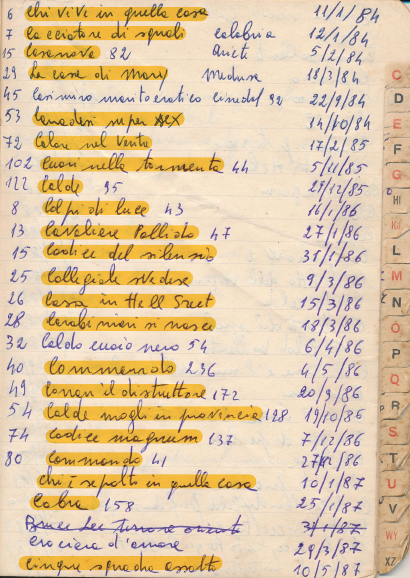 6 chi vive in quella casa 11/1/84
7 cacciatore di squali calabria 12/1/84
15 Casanova 82 5/2/84
29 La casa di Mary medusa 18/3/84
45 casimiro 92 22/9/84
53 Canadesi super sex 14/10/84
72 Calore nel Ventre 17/2/85
102 Cuori nella tormenta 44 5/11/85
122 Calde 95 29/12/85
8 Colpi di luce 43 16/1/86
13 Cavaliere Pallido 47 27/1/86
15 Codice del silenzio 31/1/86
25 Collegiale svedese 9/3/86
26 Cassa in Hell Street 15/3/86
28 Carabinieri si nasce 18/3/86
32 Caldo cuoio nero 54 6/4/86
40 Commando 236 4/5/86
49 Conan il distruttore 172 20/9/86
54 Calde mogli in provincia 128 19/10/86
74 Codice magnum 137 7/12/86
80 Commando 41 27/12/86
chi è sepolto in quella casa 10/1/87
Cobra 158 25/1/87
Bruce Lee terrore 31/1/87
crociera d'amore 29/3/87
cinque squadra assalto 10/5/87
C
D
E
F
G
HI
L
M
N
O
P
Q
R
S
T
U
V
WY
XZ